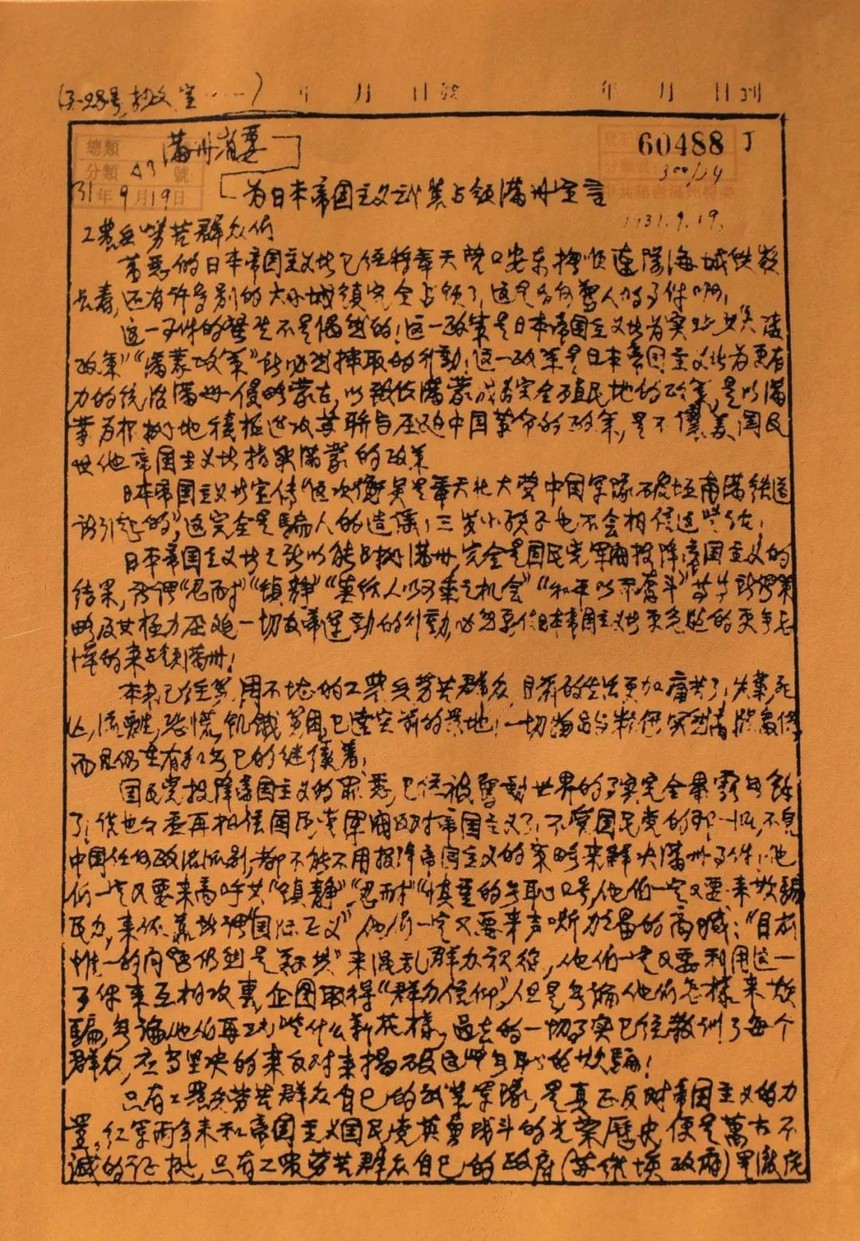 满州省委
60488
31年9月19日
为日本帝国主义武装占领满洲宣言
1931.9.19.
工农兵劳苦群众们
万恶的日本帝国主义者已经将奉天营口安东抚顺辽阳海城铁岭
长春,还有许多别的大小城镇完全占领了,这是如何惊人的事件啊!
这一事件的发生不是偶然的!这一政策是日本帝国主义者为实现其“大陆
政策”“满蒙政策”所必然采取的行动!这一政策是日本帝国主义者为更有
力的统治满洲侵略蒙古,以致使满蒙成为完全殖民地的政策,是以满
蒙为根据地积极进攻苏联与压迫中国革命的政策,是不 美国及
其他帝国主义者 满蒙的政策
日本帝国主义者宣传“这次冲突是奉天北大营中国军队破坏南满铁道
所引起的”,这完全是骗人的造谣!三岁小孩子也不会相信这些话!
日本帝国主义者之所以能占据满洲,完全是国民党军阀投降帝国主义的
结果,所谓“忍耐”“镇静”“莫给人以可乘之机会”“和平以 奋斗”等等
略及其极力压迫一切反帝运动的行动,
的来占领满洲!
本来已经 的工农兵劳苦群众目前的生活更加痛苦了,失业,死
亡,流离,恐慌,饥饿 已达空前的
而且仍在有加无已的继续着!
国民党投降帝国主义的罪恶,已经被惊动世界的事实完全暴露无余
了!谁也不要再相信国民党军阀反对帝国主义了!不管国民党的那一派,不管
中国任何政治派别,都不能不用投降帝国主义的策略来解决满州事件!他
们一定又要来高呼其“镇静”“忍耐”“慎重”的无耻口号,他们一定又要来欺骗
民众,来依靠所谓“国际正义”他们一定又要来声嘶力竭的高喊:“目前
惟一的问题仍然是剿共”来混乱群众视线,他们一定又要利用这一
事件来互相攻衷,企图取得“群众信仰”,但是无论他们怎样来欺
骗,无论他们再玩些什么新花样,过去的一切事实已经教训了每个
群众,应当坚决的来反对来揭破这些无耻的欺骗!
只有工农兵劳苦群众自己的武装军队,是真正反对帝国主义的力
量,红军两年来和帝国主义国民党英勇战斗的光荣历史便是万古不
灭的证据,只有工农劳苦群众自己的政府(苏维埃政府)是彻底